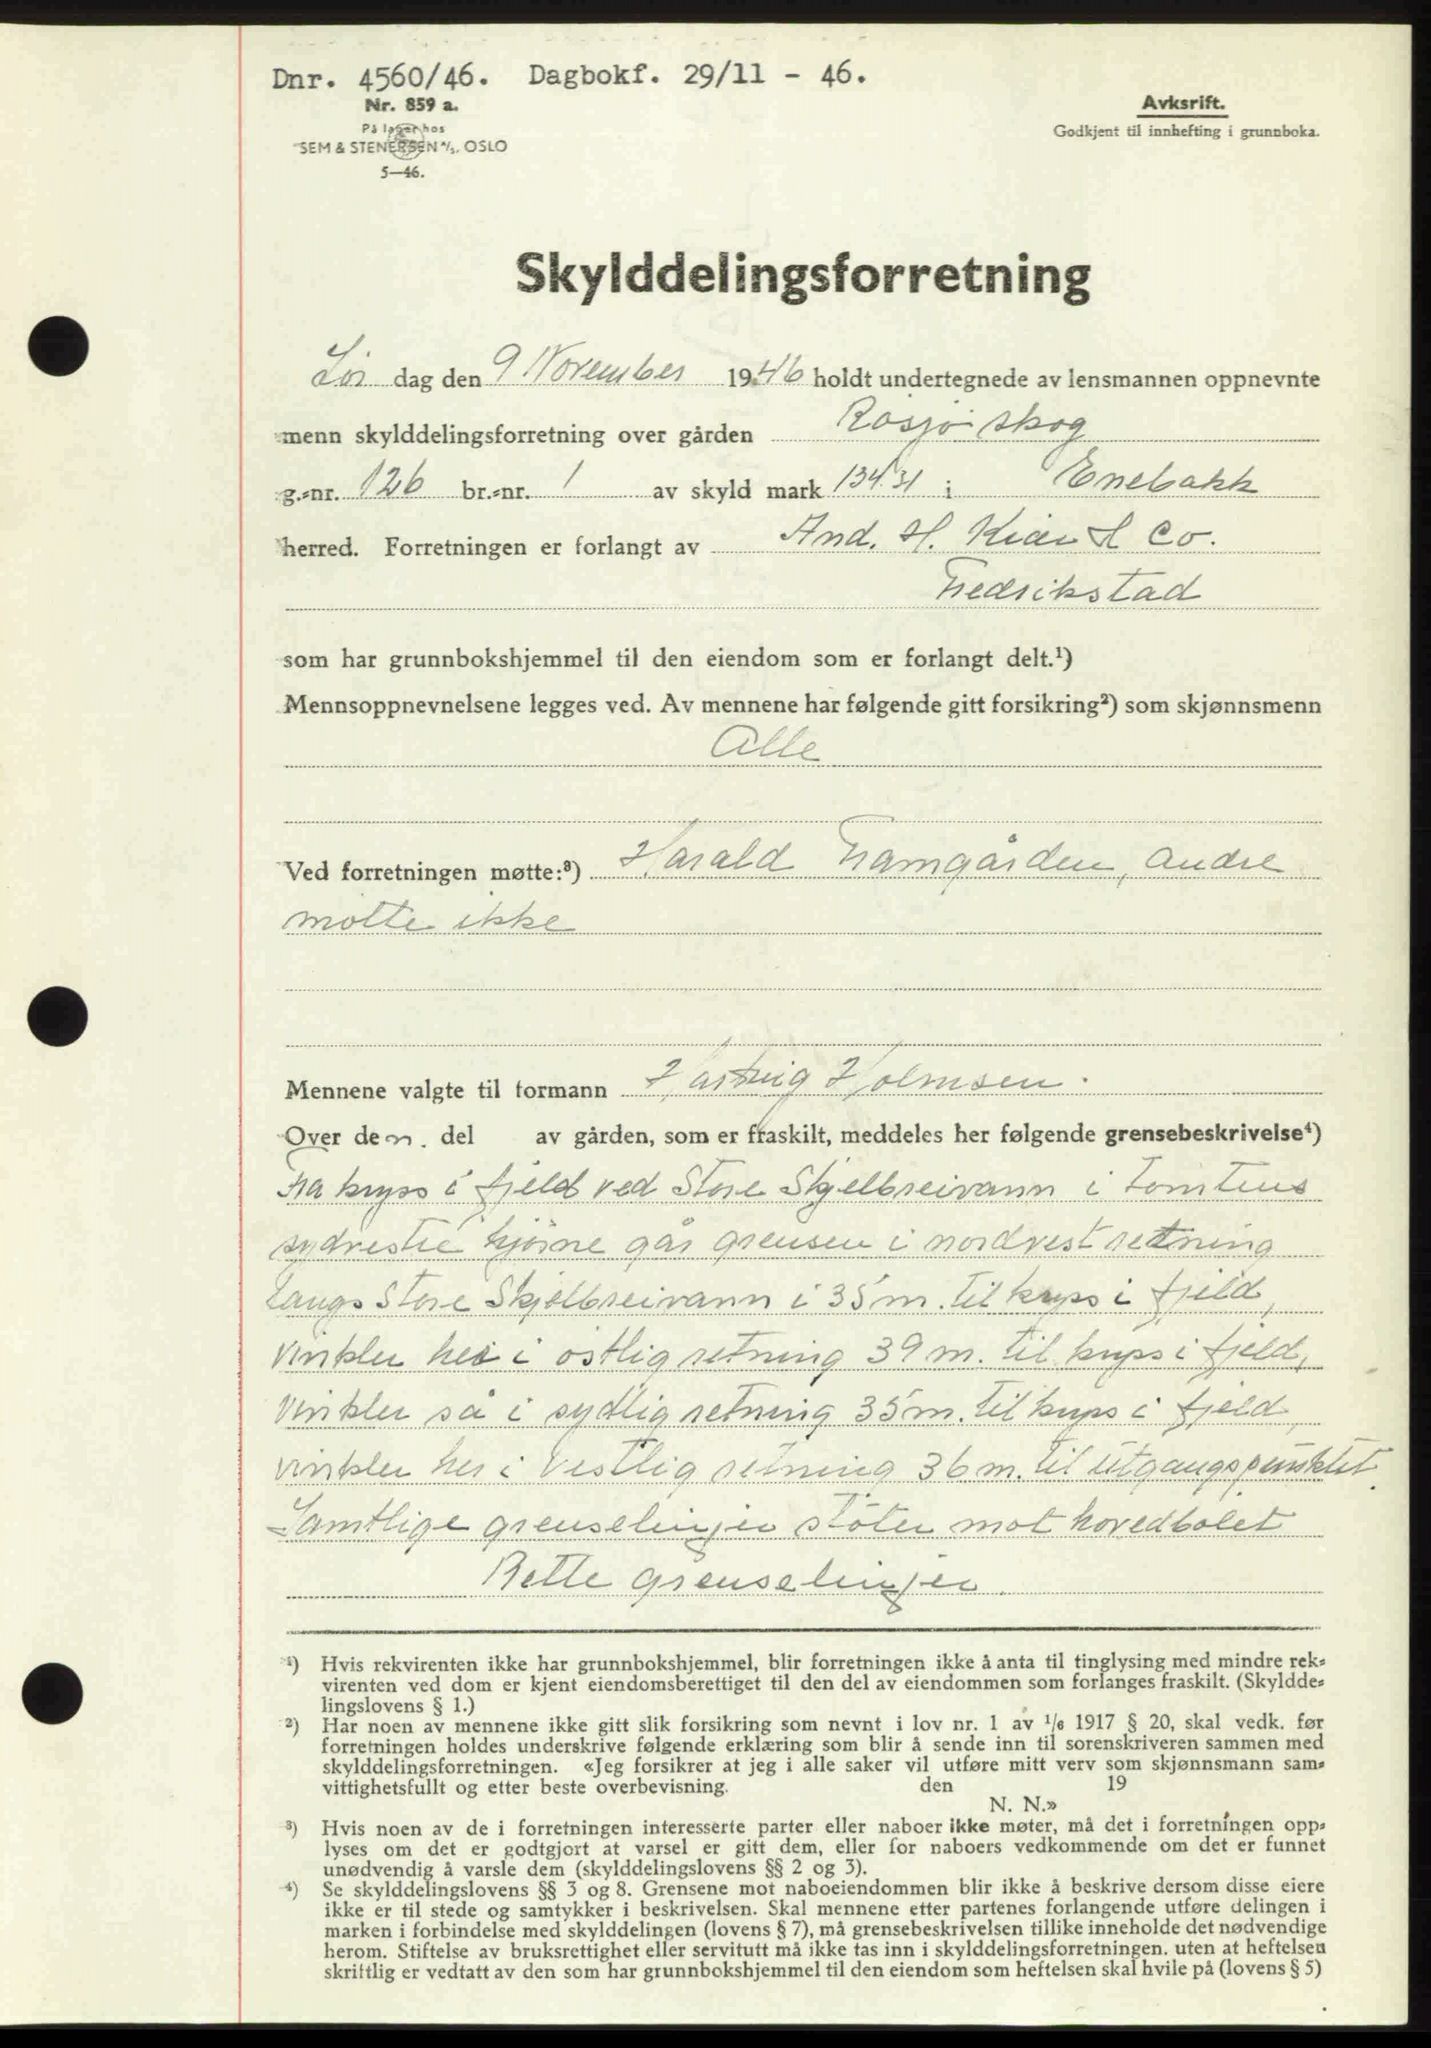 Dnr. 4560/46. Dagbokf. 29/11 - 46.
Nr. 859 a.
På lager hos
SEM & STENERSEN A/S. OSLO
5—46.
Avksrift.
Godkjent til innhefting i grunnboka.
Skylddelingsforretning
Lør dag den 9 November 1946 holdt undertegnede av lensmannen oppnevnte
menn skylddelingsforretning over gården Råsjø skog
g.=nr. 126 br.=nr. 1 av skyld mark 134.31 i Enebakk
herred. Forretningen er forlangt av And. H. Kiær & Co.
Fredrikstad
som har grunnbokshjemmel til den eiendom som er forlangt delt.¹)
Mennsoppnevnelsene legges ved. Av mennene har følgende gitt forsikring²) som skjønnsmenn
Alle
Ved forretningen møtte:³) Harald Framgården, andre
møtte ikke
Mennene valgte til formann Hartvig Holmsen.
Over den. del av gården, som er fraskilt, meddeles her følgende grensebeskrivelse⁴)
Fra kryss i fjeld ved Store Skjelbreivann i tomtens
sydvestre hjørne går grensen i nordvest retning
langs Store Skjelbreivann i 35 m. til kryps i fjeld,
vinkler her i østlig retning 39 m. til kryps i fjeld,
vinkler så i sydlig retning 35 m. til kryps i fjeld,
vinkler her i vestlig retning 36 m. til utgangspunktet.
Samtlige grenselinjer støter mot hovedbølet
Rette grenselinjer.
¹) Hvis rekvirenten ikke har grunnbokshjemmel, blir forretningen ikke å anta til tinglysing med mindre rek=
virenten ved dom er kjent eiendomsberettiget til den del av eiendommen som forlanges fraskilt. (Skyldde=
lingslovens § 1.)
²) Har noen av mennene ikke gitt slik forsikring som nevnt i lov nr. 1 av 1/6 1917 § 20, skal vedk. før
forretningen holdes underskrive følgende erklæring som blir å sende inn til sorenskriveren sammen med
skylddelingsforretningen. «Jeg forsikrer at jeg i alle saker vil utføre mitt verv som skjønnsmann sam=
vittighetsfullt og etter beste overbevisning. den 19
N. N.»
³) Hvis noen av de i forretningen interesserte parter eller naboer ikke møter, må det i forretningen opp=
lyses om det er godtgjort at varsel er gitt dem, eller for naboers vedkommende om det er funnet
unødvendig å varsle dem (skylddelingslovens §§ 2 og 3).
⁴) Se skylddelingslovens §§ 3 og 8. Grensene mot naboeiendommen blir ikke å beskrive dersom disse eiere
ikke er til stede og samtykker i beskrivelsen. Skal mennene etter partenes forlangende utføre delingen i
marken i forbindelse med skylddelingen (lovens § 7), må grensebeskrivelsen tillike inneholde det nødvendige
herom. Stiftelse av bruksrettighet eller servitutt må ikke tas inn i skylddelingsforretningen. uten at heftelsen
skriftlig er vedtatt av den som har grunnbokshjemmel til den eiendom som heftelsen skal hvile på (lovens § 5)